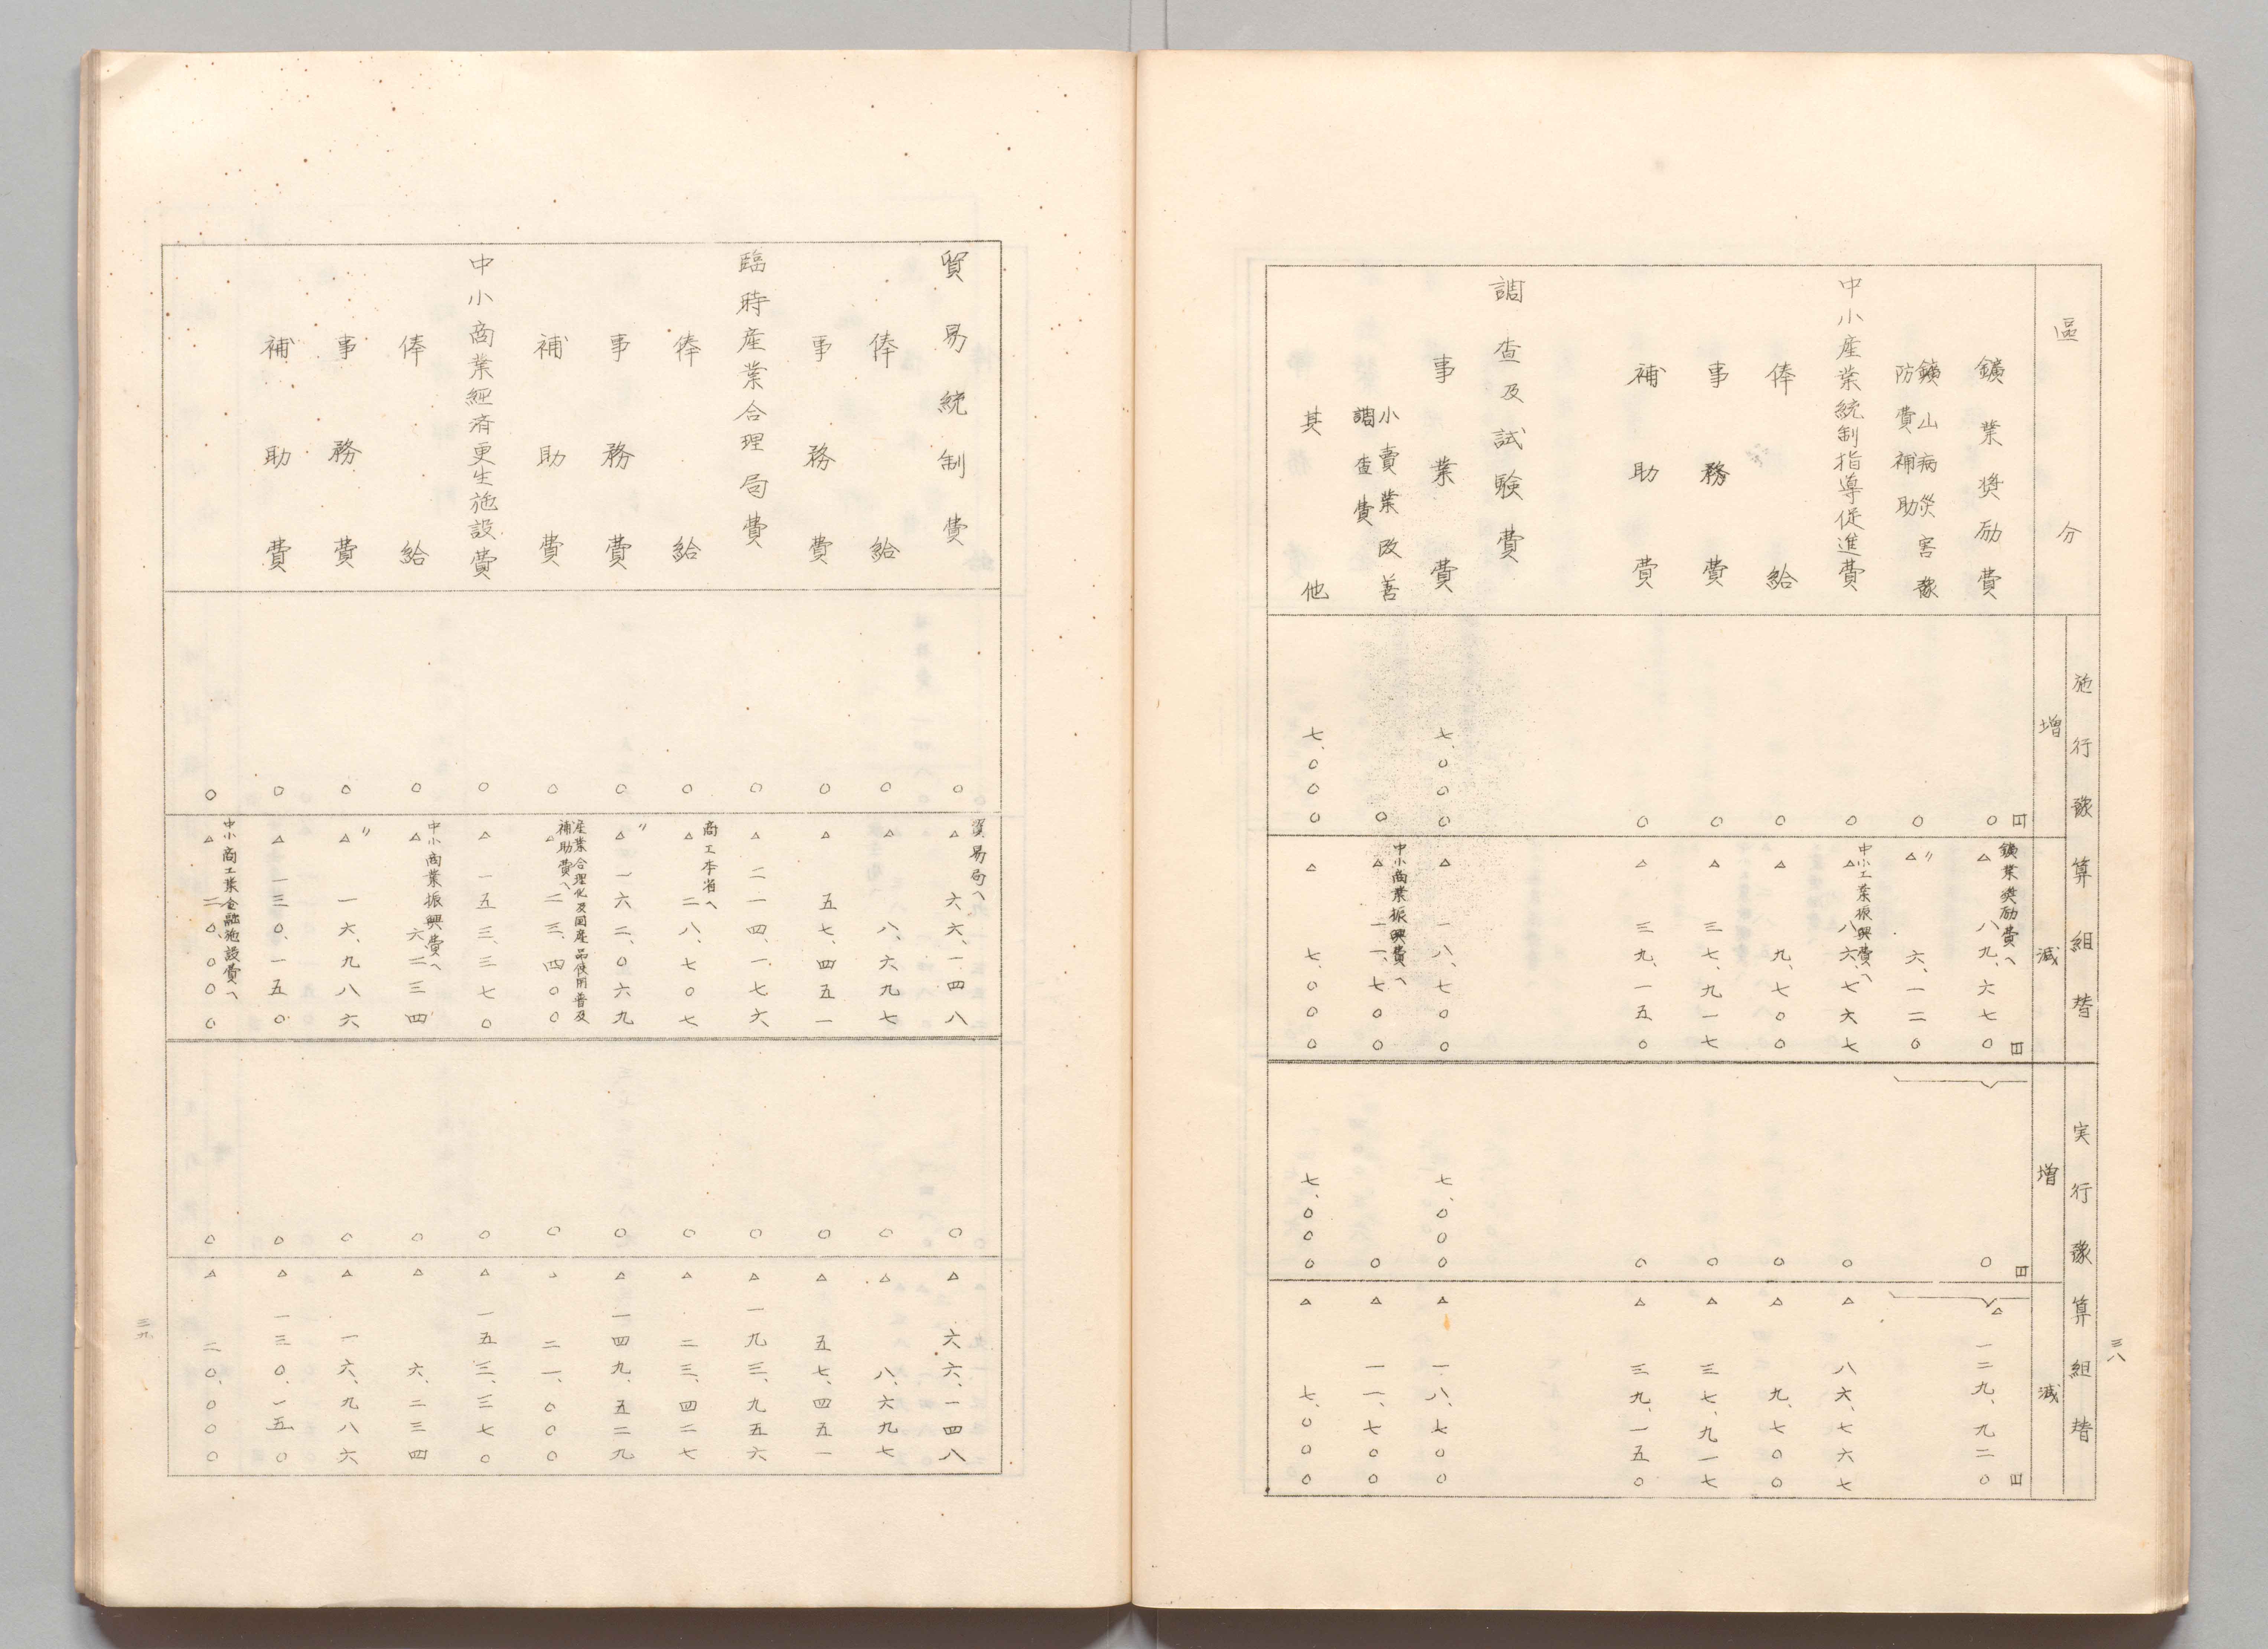 三八
區分
施行豫算組替
増
減
実行豫算組替
増
減
円
円
円
円
鑛業奨励費
○
鑛業奨励費へ
△八九、六七〇
○
△一二九、九二〇
鑛山病災害豫
防費補助
○
〃
△六、一二〇
中小産業統制指導促進費
○
中小工業振興費へ
△八六、七六七
○
△八六、七六七
俸給
○
△九、七〇〇
○
△九、七〇〇
事務費
○
△三七、九一七
○
△三七、九一七
補助費
○
△三九、一五〇
○
△三九、一五〇
調査及試験費
事業費
七、〇〇〇
△一八、七〇〇
七、〇〇〇
△一八、七〇〇
小賣業改善
調査費
○
中小商業振興費へ
△一一、七〇〇
○
△一一、七〇〇
其他
七、〇〇〇
△七、〇〇〇
七、〇〇〇
△七、〇〇〇
貿易統制費
○
貿易局へ
△六六、一四八
○
△六六、一四八
俸給
○
△八、六九七
○
△八、六九七
事務費
○
△五七、四五一
○
△五七、四五一
臨時産業合理局費
○
△二一四、一七六
○
△一九三、九五六
俸給
○
商工本省へ
△二八、七〇七
○
△二三、四二七
事務費
○
〃
△一六二、〇六九
○
△一四九、五二九
補助費
○
産業合理化及国産品使用普及
補助費へ
△二三、四〇〇
○
△二一、〇〇〇
中小商業経済更生施設費
○
△一五三、三七〇
○
△一五三、三七〇
俸給
○
中小商業振興費へ
△六、二三四
○
△六、二三四
事務費
○
〃
△一六、九八六
○
△一六、九八六
補助費
○
△一三〇、一五〇
○
△一三〇、一五〇
○
中小商工業金融施設費へ
△二〇、〇〇〇
○
△二〇、〇〇〇
三九